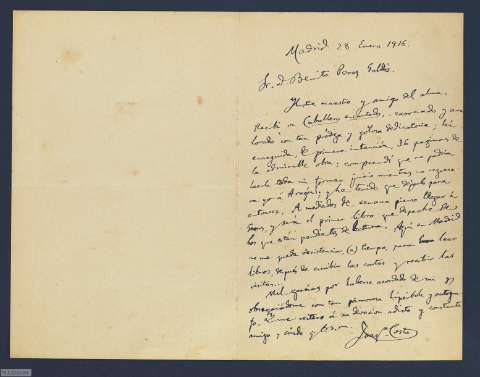 Madrid 28 Enero 1916.
Sr. d. Benito Perez Galdós.
maestro y amigo del alma.
Recibí su Caballero encantado,
con tan pródiga y dedicatoria; leí
enseguida, de primera intención, 36 paginas de
la admirable obra; comprendí que no podría
leerla toda ni formar juicio mientras no regrese
yo á Aragón; y he tenido que dejarla para
entonces. A mediados de semana pienso llegar á
y será el primer libro que despache de
los que están pendientes de lectura. Aquí en Madrid
no me queda tiempo, para leer
libros, después de escribir las cartas y recibir las
visitas.
Mil gracias por haberse acordado de mi y
con tan primorosa
reitero á su devoción adicto y constante
amigo,
Joaqn Costa